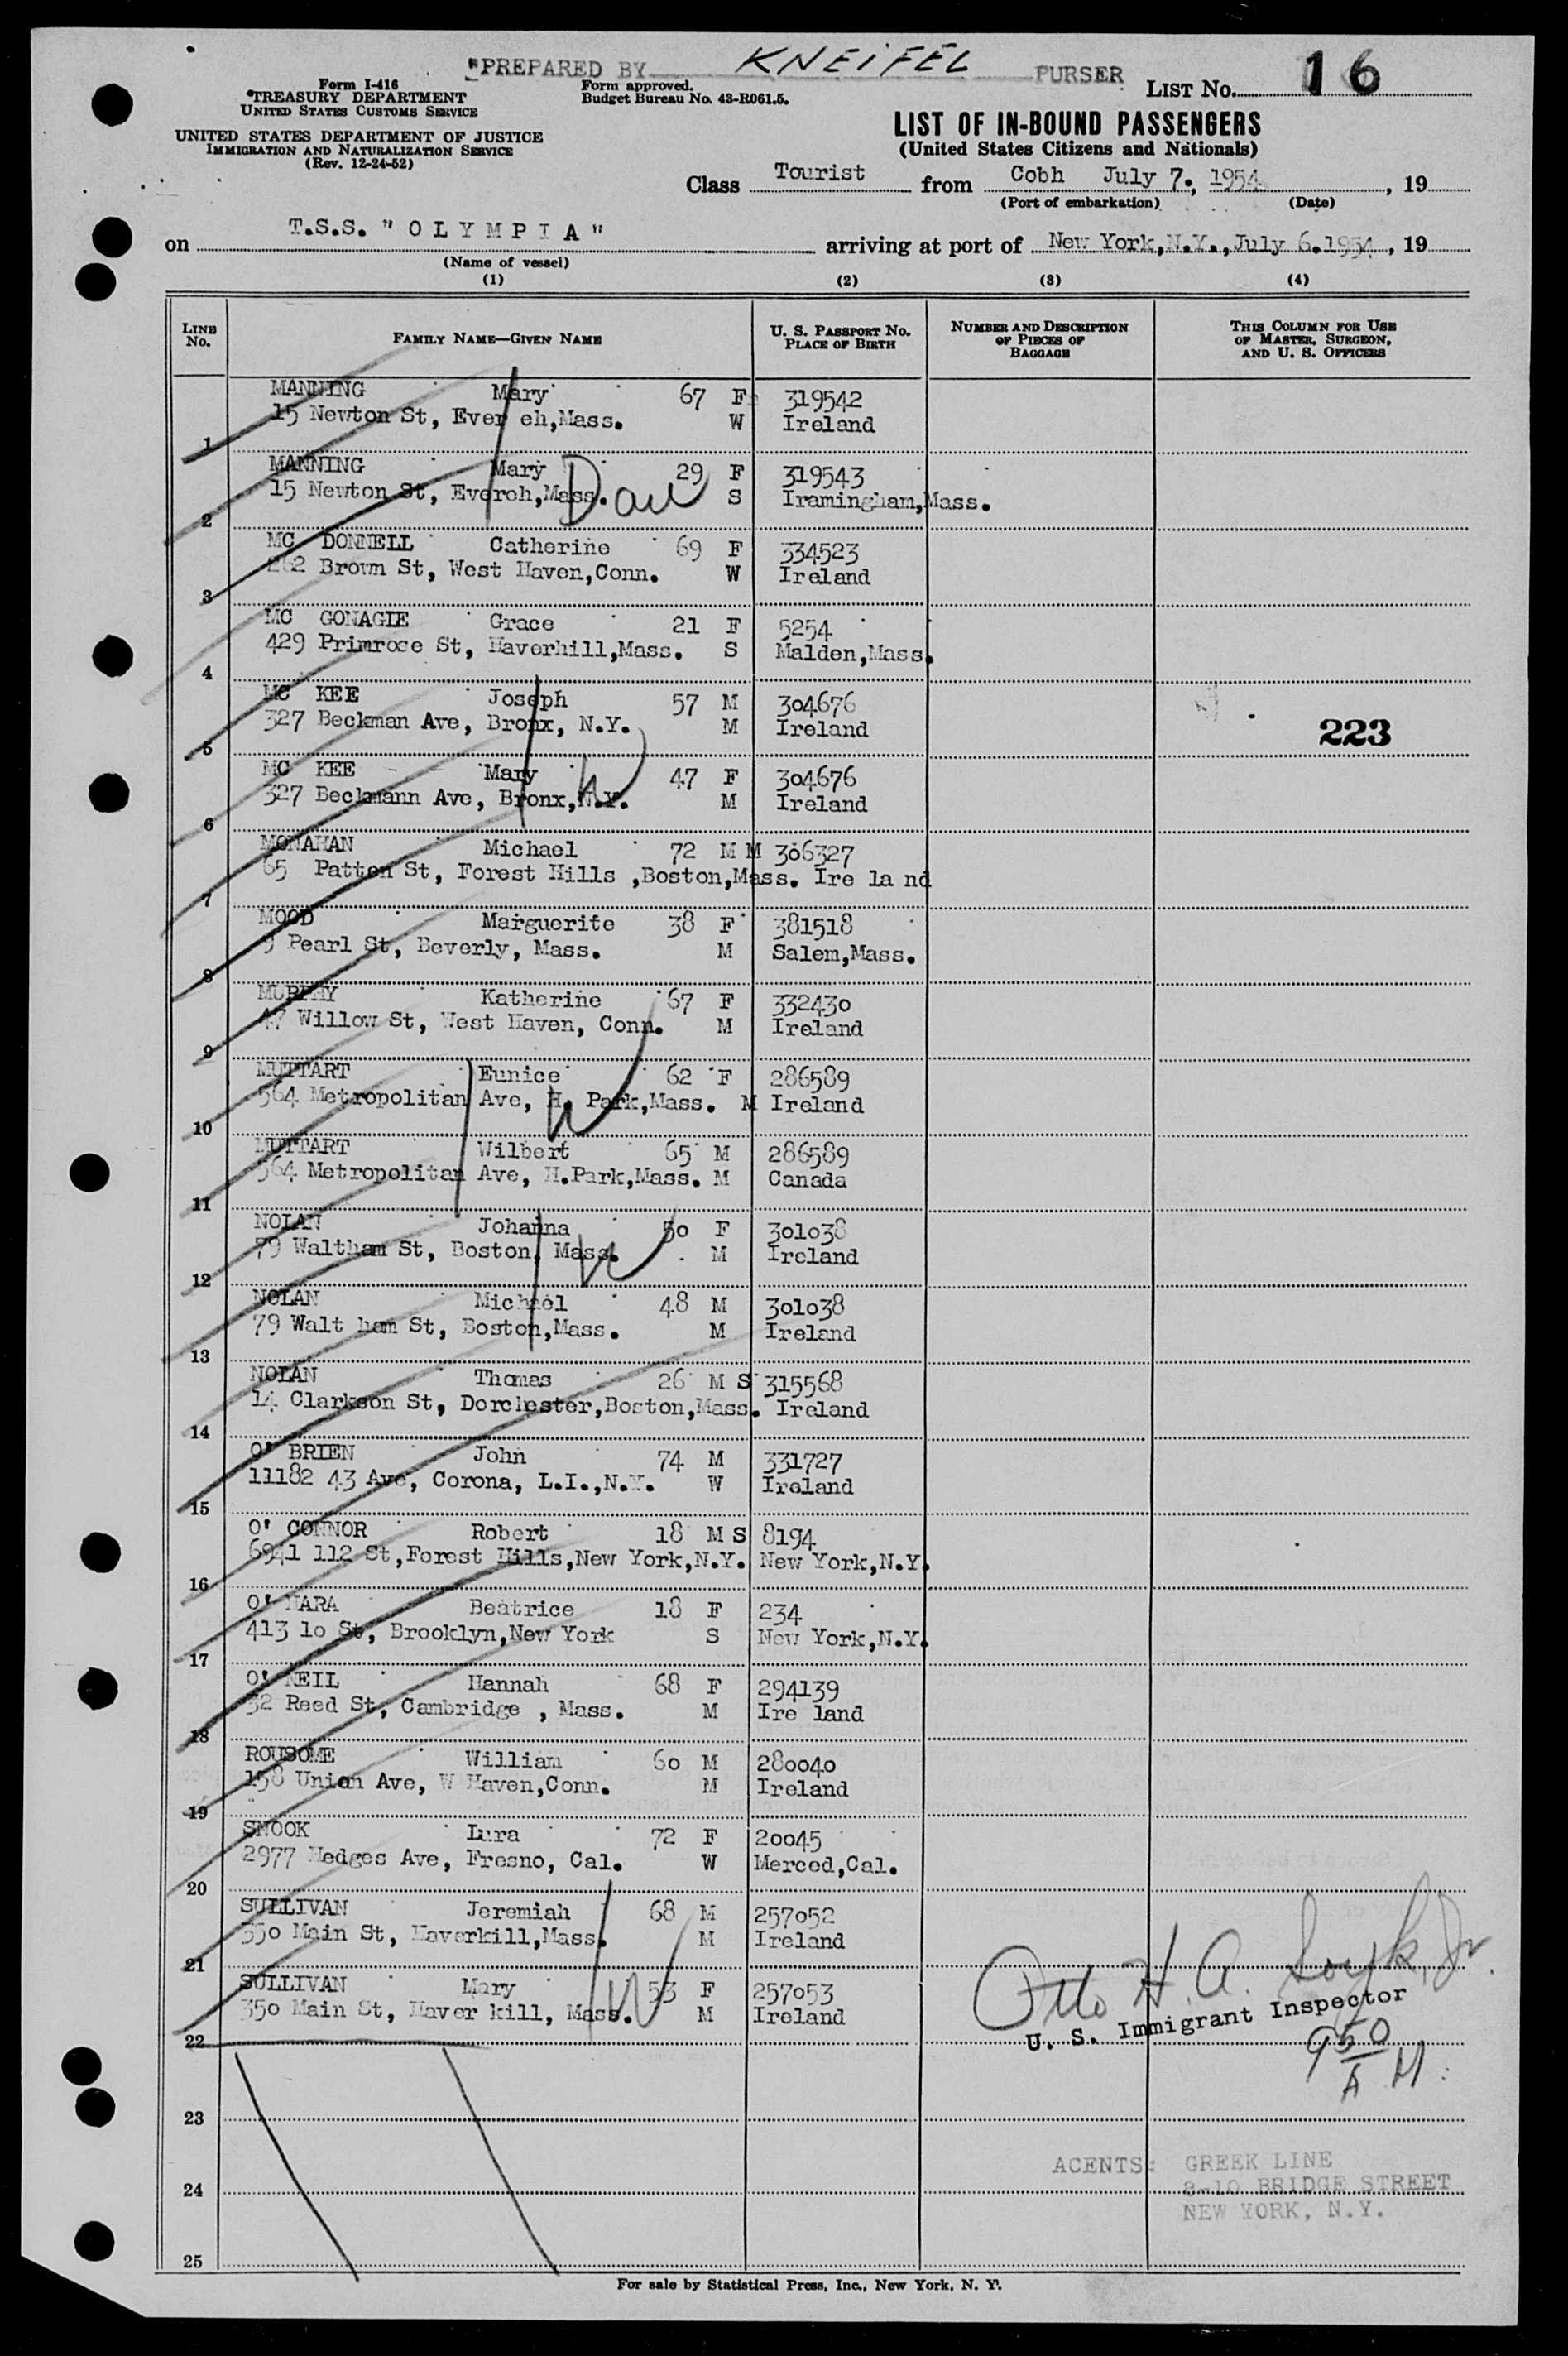 "PREPARED BY KNEIFEL PURSER
Form I-416
TREASURY DEPARTMENT
UNITED STATES CUSTOMS SERVICE
UNITED STATES DEPARTMENT OF JUSTICE
IMMIGRATION AND NATURALIZATION SERVICE
(Rev. 12-24-52)
Form approved.
Budget Bureau No. 43-R061.5.
LIST NO. 16
LIST OF IN-BOUND PASSENGERS
(United States Citizens and Nationals)
Class Tourist from Cobh July 7., 1954 , 19
(Port of embarkation) (Date)
on T.S.S. "OLYMPIA" arriving at port of New York, N.Y., July 6.1954 , 19
(Name of vessel)
(1) (2) (3) (4)
LINE NO. FAMILY NAME—GIVEN NAME U. S. PASSPORT NO. PLACE OF BIRTH NUMBER AND DESCRIPTION OF PIECES OF BAGGAGE THIS COLUMN FOR USE OF MASTER, SURGEON, AND U. S. OFFICERS
MANNING Mary 67 F 319542
1 15 Newton St, Ever eh,Mass. W Ireland
MANNING Mary 29 F 319543
2 15 Newton St, Evereh,Mass. Dau S Iramingham,Mass.
MC DONNELL Catherine 69 F 334523
3 262 Brown St, West Haven,Conn. W Ireland
MC GONAGIE Grace 21 F 5254
4 429 Primrose St, Haverhill,Mass. S Malden,Mass.
MC KEE Joseph 57 M 304676
5 327 Beckman Ave, Bronx, N.Y. M Ireland
223
MC KEE Mary 47 F 304676
6 327 Beckmann Ave, Bronx,N.Y. M Ireland
MONAHAN Michael 72 M M 306327
7 65 Patton St, Forest Hills ,Boston,Mass. Ire la nd
MOOD Marguerite 38 F 381518
8 9 Pearl St, Beverly, Mass. M Salem,Mass.
MURPHY Katherine 67 F 332430
9 47 Willow St, West Haven, Conn. M Ireland
MUTTART Eunice 62 F 286589
10 564 Metropolitan Ave, H. Park,Mass. M Ireland
MUTTART Wilbert 65 M 286589
11 564 Metropolitan Ave, H.Park,Mass. M Canada
NOLAN Johanna 50 F 301038
12 79 Waltham St, Boston, Mass. M Ireland
NOLAN Michael 48 M 301038
13 79 Walt ham St, Boston,Mass. M Ireland
NOLAN Thomas 26 M S 315568
14 14 Clarkson St, Dorchester,Boston,Mass. Ireland
O' BRIEN John 74 M 331727
15 11182 43 Ave, Corona, L.I.,N.Y. W Ireland
O' CONNOR Robert 18 M S 8194
16 6941 112 St,Forest Hills,New York,N.Y. New York,N.Y.
O' HARA Beatrice 18 F 234
17 413 1o St, Brooklyn,New York S New York,N.Y.
O' NEIL Hannah 68 F 294139
18 32 Reed St, Cambridge , Mass. M Ire land
ROUSOME William 60 M 280040
19 158 Union Ave, W Haven,Conn. M Ireland
SNOOK Lura 72 F 20045
20 2977 Hedges Ave, Fresno, Cal. W Merced,Cal.
SULLIVAN Jeremiah 68 M 257052
21 350 Main St, Haverkill,Mass. M Ireland
SULLIVAN Mary 53 F 257053
22 350 Main St, Haver kill, Mass. M Ireland
Otto H. A. Jr.
U. S. Immigrant Inspector
950
A M.
23
24
25
AGENTS: GREEK LINE
8-10 BRIDGE STREET
NEW YORK, N.Y.
For sale by Statistical Press, Inc., New York, N. Y.